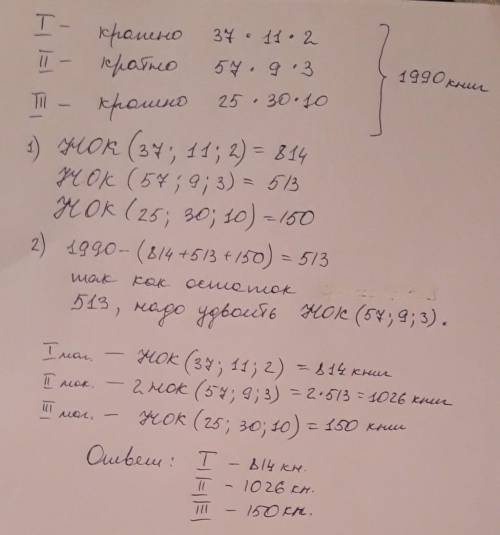 I – кратно 37 · 11 · 2
II – кратно 57 · 9 · 3
III – кратно 25 · 30 · 10
1990 книг
1) НОК (37; 11; 2) = 814
НОК (57; 9; 3) = 513
НОК (25; 30; 10) = 150
2) 1990 – (814 + 513 + 150) = 513
так как остаток
513, надо удвоить НОК (57; 9; 3).
I маг. – НОК (37; 11; 2) = 814 книг
II маг. – 2 НОК (57; 9; 3) = 2·513 = 1026 книг
III маг. – НОК (25; 30; 10) = 150 книг
Ответ: I – 814 кн.
II – 1026 кн.
III – 150 кн.